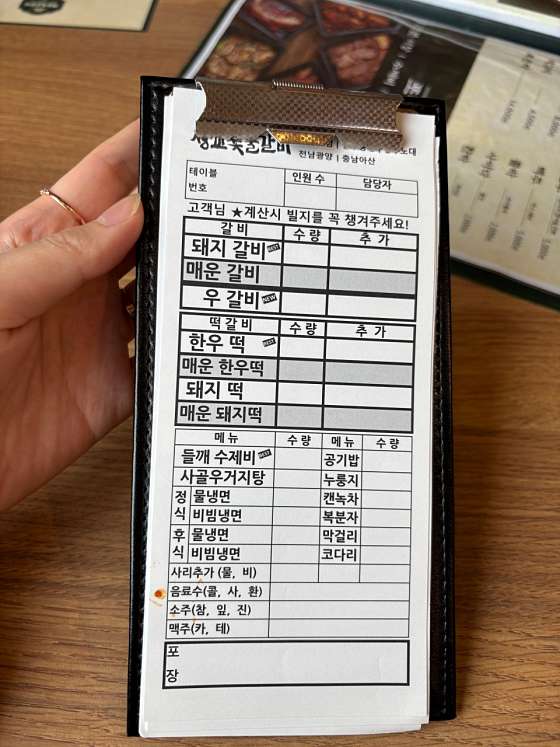 숯불갈비
전남광양 | 충남아산
테이블 번호 인원 수 담당자
고객님 ★계산시 빌지를 꼭 챙겨주세요!
갈 비 수 량 추 가
돼지 갈비 BEST
매운 갈비
우 갈비 NEW
떡 갈 비 수 량 추 가
한우 떡 BEST
매운 한우떡
돼지 떡
매운 돼지떡
메 뉴 수 량 메 뉴 수 량
들깨 수제비 BEST 공기밥
사골우거지탕 누룽지
정 물냉면 캔녹차
식 비빔냉면 복분자
후 물냉면 막걸리
식 비빔냉면 코다리
사리추가 (물, 비)
음료수(콜, 사, 환)
소주(참, 잎, 진)
맥주(카, 테)
포
장